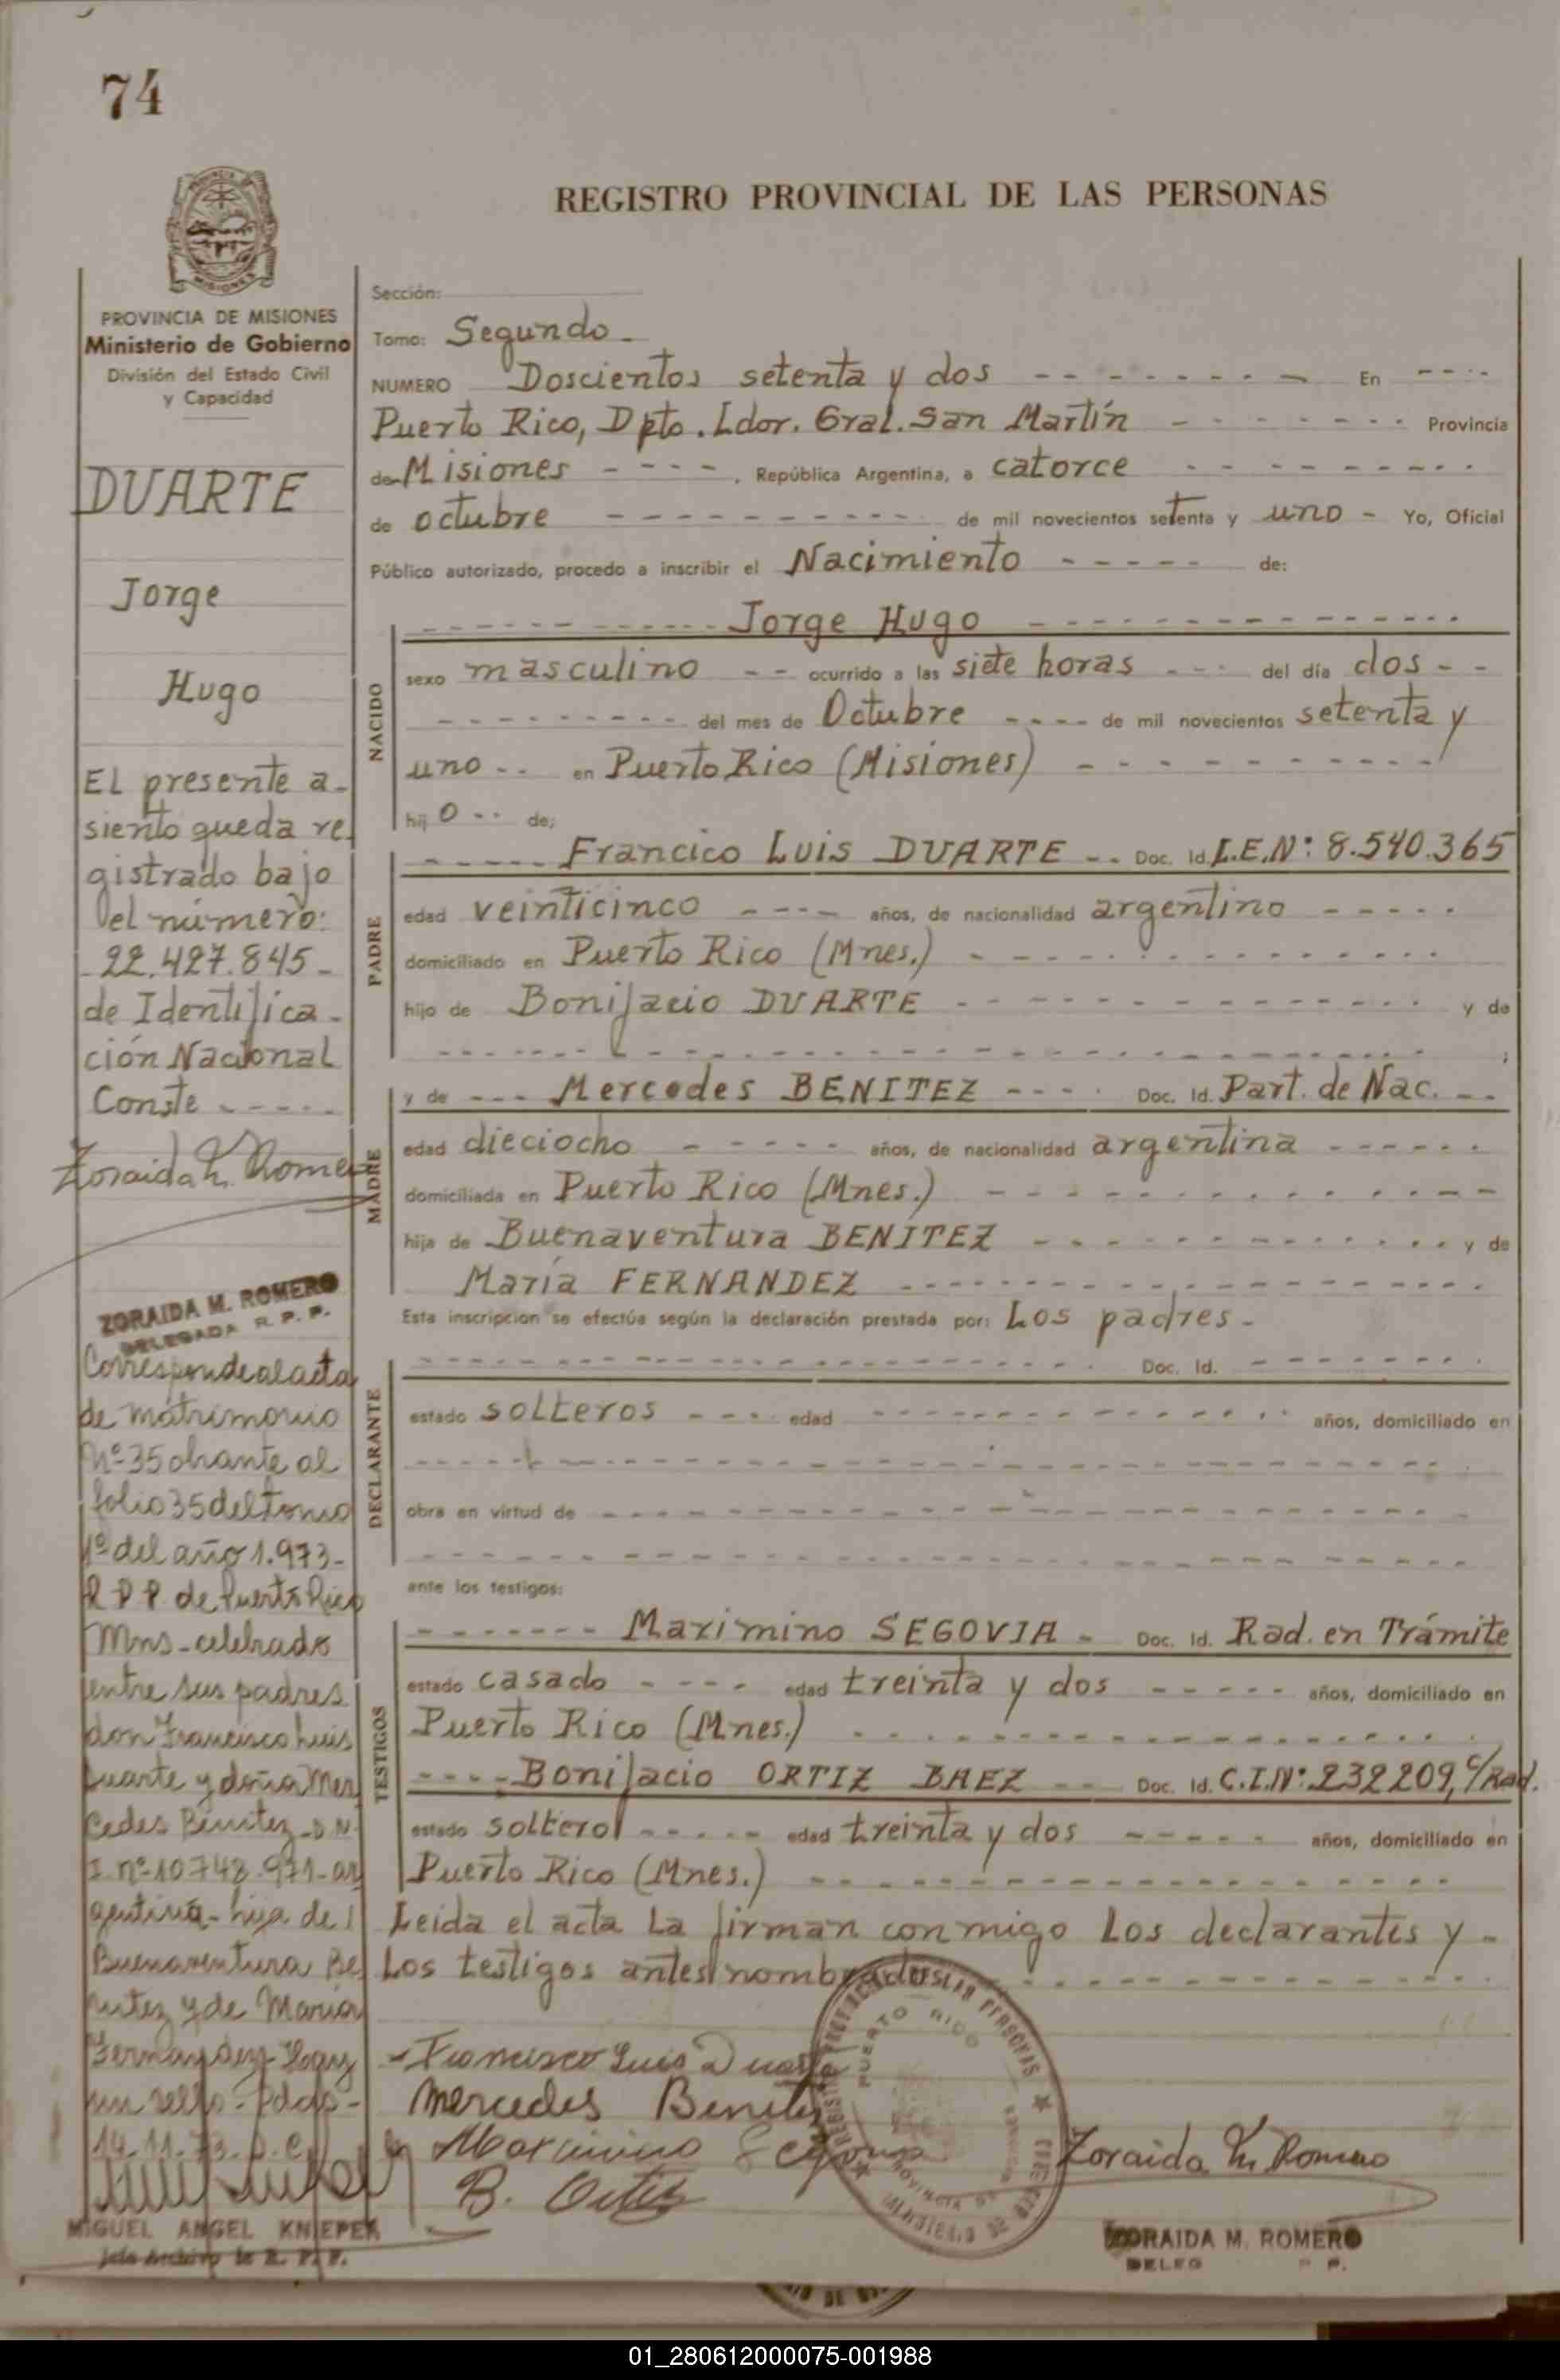 74
REGISTRO PROVINCIAL DE LAS PERSONAS
PROVINCIA DE MISIONES
Ministerio de Gobierno
División del Estado Civil
y Capacidad
DUARTE
Jorge
Hugo
El presente a-
siento queda re
gistrado bajo
el número:
22.427.845-
de Identifica-
ción Nacional
Conste
Zoraida M. Romero
ZORAIDA M. ROMERO
DELEGADA R. P. P.
Corresponde al acta
de matrimonio
Nº 35 obrante al
folio 35 del tomo
1º del año 1.973-
R P P de Puerto Rico
Mns-celebrado
entre sus padres
don Francisco Luis
Duarte y doña Mer
cedes Benitez-D.N.
I. nº 10.748.971-ar
gentina-hija de
Buenaventura Be
nitez y de María
Fernandez-Hay
un sello-Pdas-
14.11.73.
MIGUEL ANGEL KNIEPER
Jefe Archivo R. P. P.
Sección:
Tomo: Segundo-
NUMERO Doscientos setenta y dos En
Puerto Rico, Dpto. Ldor. Gral. San Martín Provincia
de Misiones, República Argentina, a catorce
de octubre de mil novecientos setenta y uno - Yo, Oficial
Público autorizado, procedo a inscribir el Nacimiento de:
NACIDO
Jorge Hugo
sexo masculino ocurrido a las siete horas del día dos
del mes de Octubre de mil novecientos setenta y
uno en Puerto Rico (Misiones)
hijo de:
PADRE
Francico Luis DUARTE Doc. Id. L.E.Nº: 8.540.365
edad veinticinco años, de nacionalidad argentino
domiciliado en Puerto Rico (Mnes.)
hijo de Bonifacio DUARTE y de
MADRE
y de Mercedes BENITEZ Doc. Id. Part. de Nac.
edad dieciocho años, de nacionalidad argentina
domiciliada en Puerto Rico (Mnes.)
hija de Buenaventura BENITEZ y de
María FERNANDEZ
Esta inscripcion se efectúa según la declaración prestada por: Los padres-
DECLARANTE
Doc. Id.
estado solteros edad años, domiciliado en
obra en virtud de
ante los testigos:
TESTIGOS
Maximino SEGOVIA Doc. Id. Rad. en Trámite
estado casado edad treinta y dos años, domiciliado en
Puerto Rico (Mnes.)
Bonifacio ORTIZ BAEZ Doc. Id. C.I.Nº: 232209, c/Rad.
estado soltero edad treinta y dos años, domiciliado en
Puerto Rico (Mnes.)
Leida el acta la firman conmigo los declarantes y -
los testigos antes nombrados
Francisco Luis Duarte
Mercedes Benitez
Maximino Segovia
B. Ortiz
Zoraida M. Romero
REGISTRO PROVINCIAL DE LAS PERSONAS
PUERTO RICO
PROVINCIA DE
MISIONES
ZORAIDA M. ROMERO
DELEG P.
01_280612000075-001988